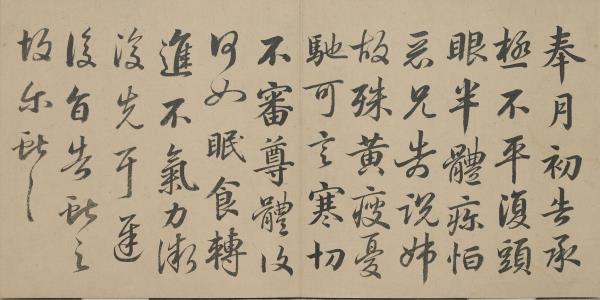 奉月初告承
極不平復頭
眼半體疼怕
惡兄告說姊
故殊黃瘦憂
馳可言寒切
不審尊體復
何如眠食轉
進不氣力漸
復先耳遲
後旨告獻之
故尔獻之